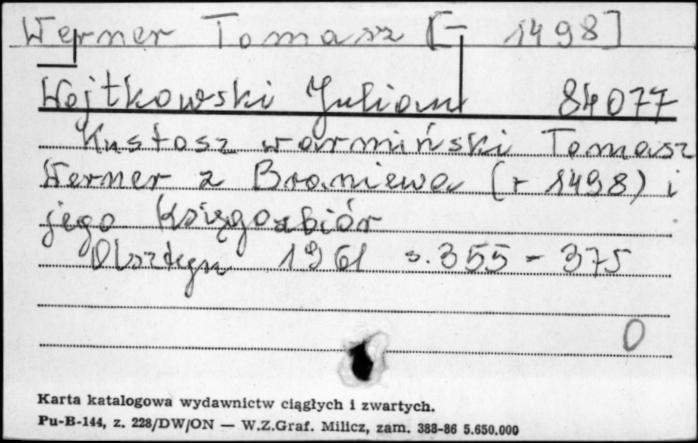 Werner Tomasz [- 1498]
Wojtkowski Julian 84077
Kustosz warmiński Tomasz
Werner z Braniewa (+ 1498) i
jego księgozbiór
Olsztyn 1961 s. 355 - 375
0
Karta katalogowa wydawnictw ciągłych i zwartych.
Pu-B-144, z. 228/DW/ON — W.Z.Graf. Milicz, zam. 388-86 5.650.000